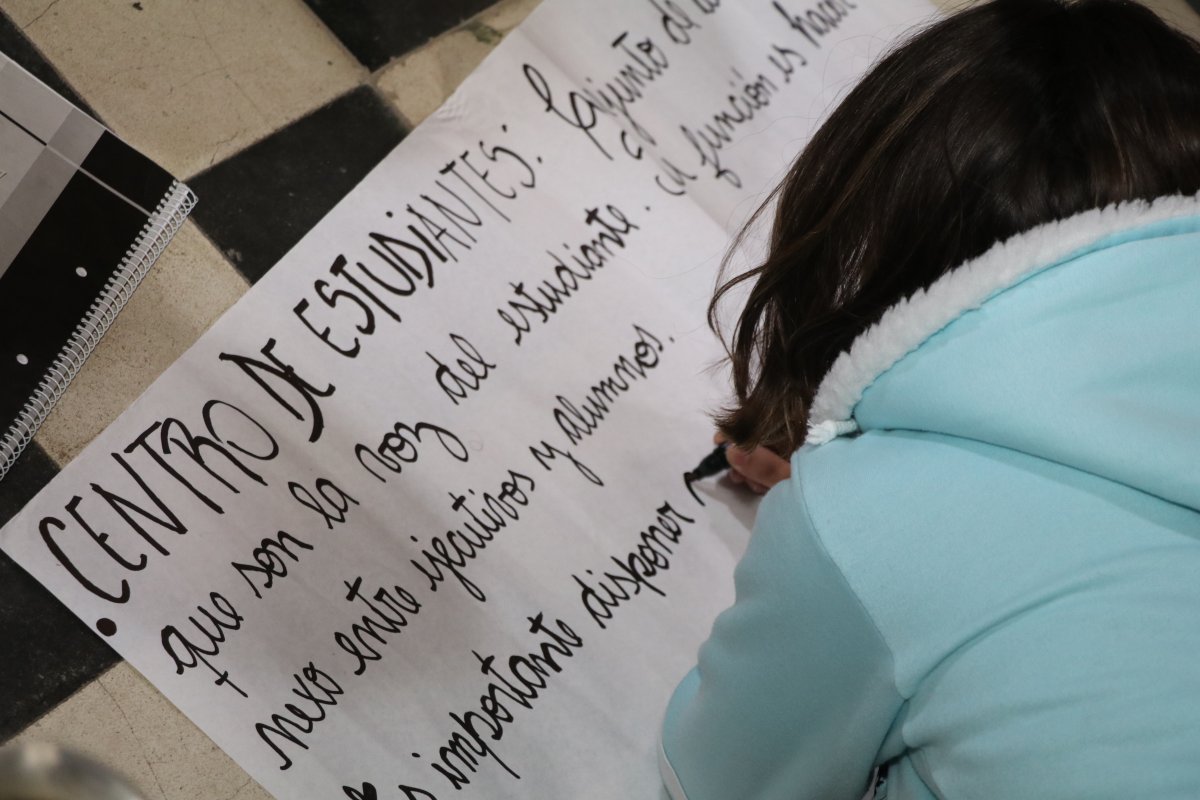 • CENTRO DE ESTUDIANTES: Conjunto de
que son la voz del estudiante. su función es hacer
nexo entre ejecutivos y alumnos.
Es importante disponer